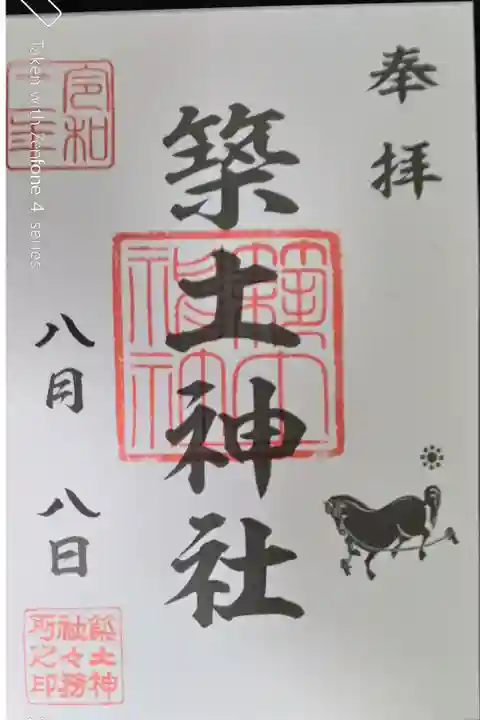 奉拝
築土神社
八月 八日
令和二年
築土神
社々務
所之印
Taken with Zenfone 4 series